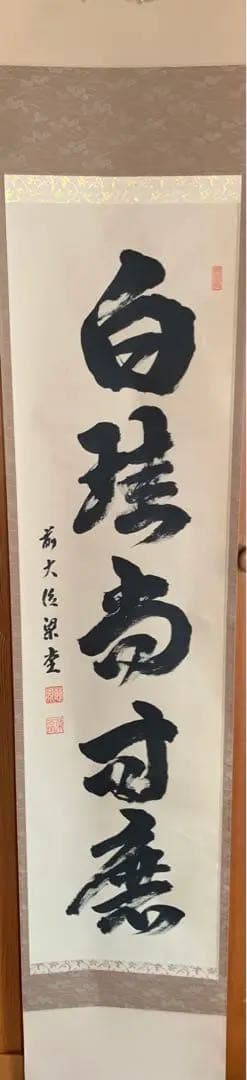 白珪尚可磨
前大徳梁堂